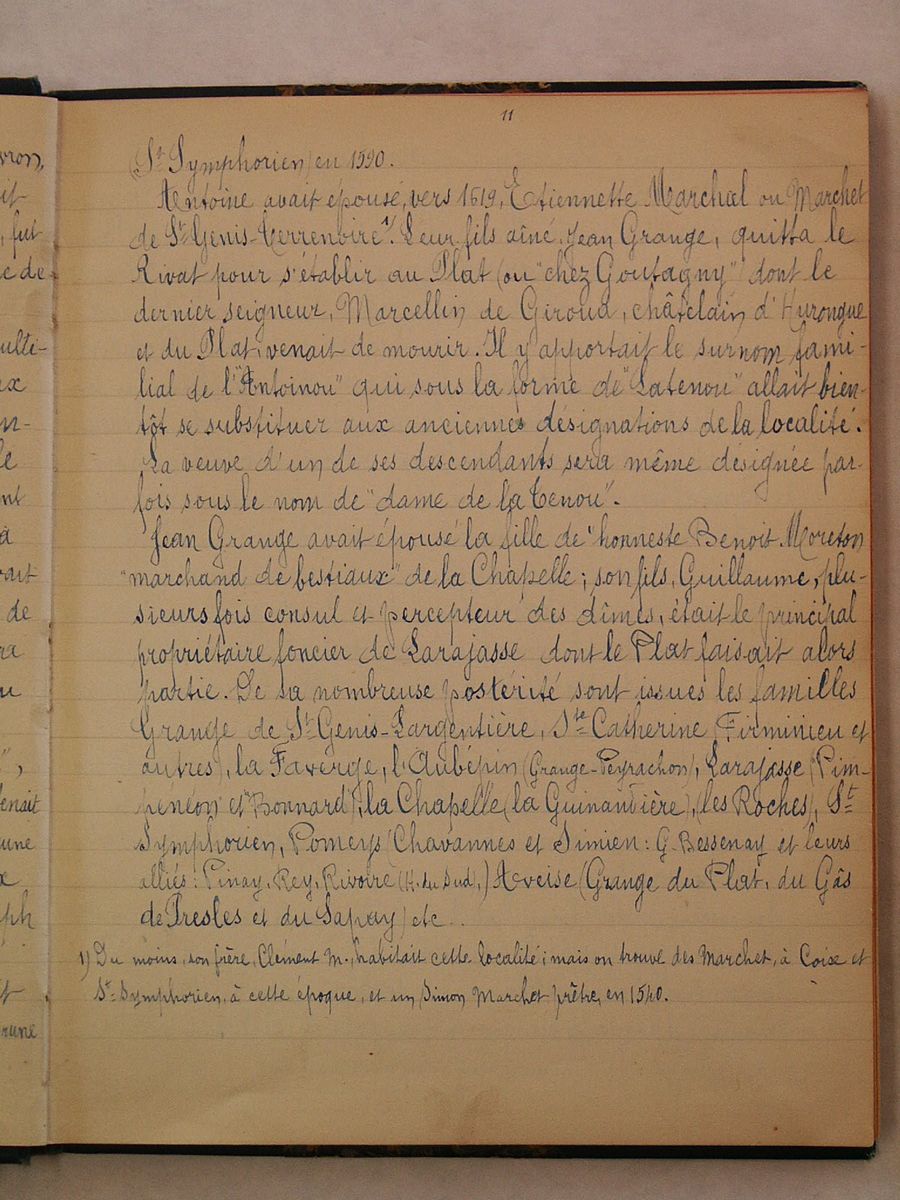 11
(St Symphorien) en 1590.
Antoine avait épousé, vers 1619, Etiennette Marchal ou Marchet
de St Genis-Terrenoire 1). Leur fils aîné, Jean Grange, quitta le
Rivat pour s'établir au Plat (ou "chez Goutagny") dont le
dernier seigneur, Marcellin de Giroud, châtelain d'Hurongue
et du Plat, venait de mourir. Il y apportait le surnom fami-
lial de l'"Antoinou" qui sous la forme de "Latenou" allait bien-
tôt se substituer aux anciennes désignations de la localité.
La veuve d'un de ses descendants sera même désignée par-
fois sous le nom de "dame de la Tenou".
Jean Grange avait épousé la fille de "honneste Benoit Moreton
marchand de bestiaux" de la Chapelle ; son fils, Guillaume, plu-
sieurs fois consul et percepteur des dîmes, était le principal
propriétaire foncier de Larajasse dont le Plat faisait alors
partie. De sa nombreuse postérité sont issues les familles
Grange de St Genis-Largentière, Ste Catherine (Firminieu et
autres), la Faverge, l'Aubépin (Grange-Peyrachon), Larajasse (Pim-
pénéon et "Bonnard"), la Chapelle (la Guinaudière), les Roches), St
Symphorien, Pomeys (Chavannes et Simien : G. Bessenay et leurs
alliés : Pinay, Rey, Rivoire (H. du Sud,) Aveise (Grange du Plat, du Gâs
de Presles et du Sapay) etc..
1) Du moins, son frère, Clément M., habitait cette localité ; mais on trouve des Marchet, à Coise et
St-Symphorien, à cette époque, et un Simon Marchet prêtre, en 1540.
vron,
it
, fut
e de
ulti-
ex
n-
le
nt
a
rait
de
ra
u
",
enait
une
x
ph
t
rune